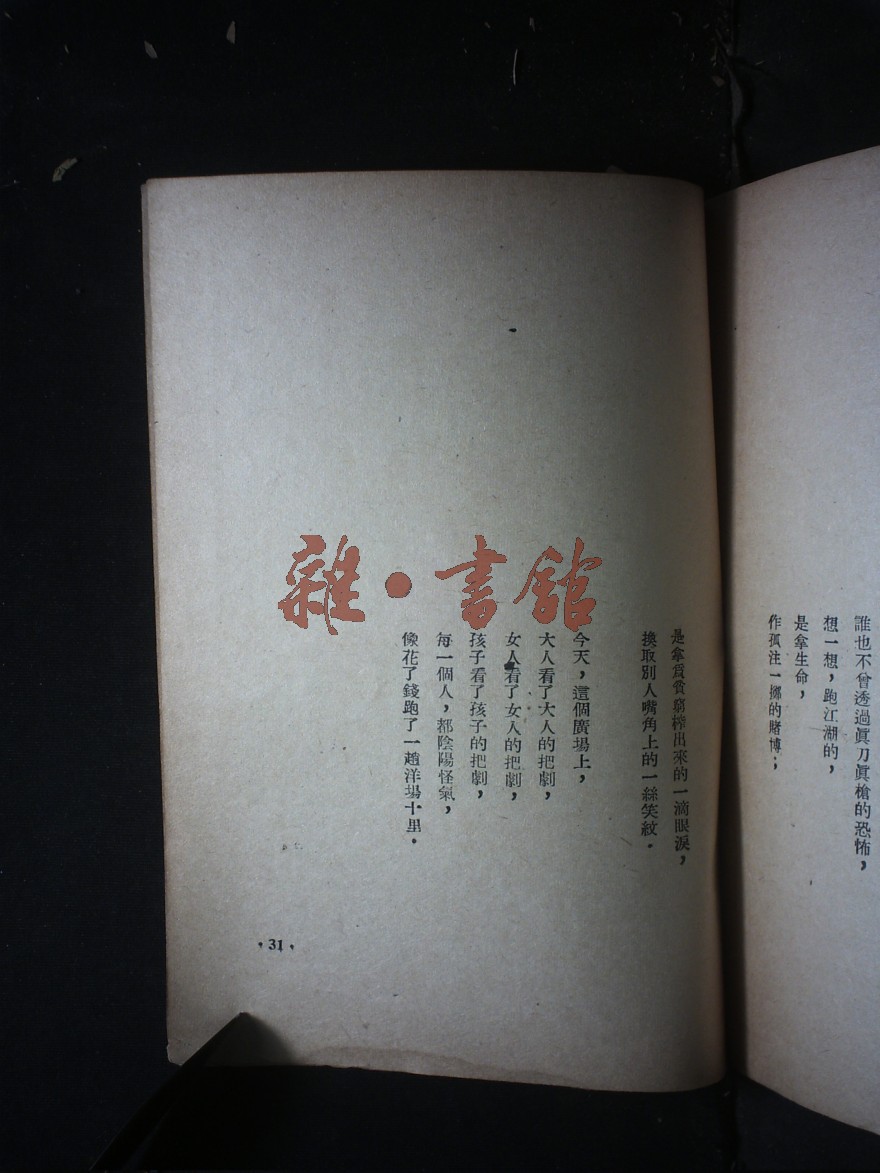 誰也不曾透過眞刀眞槍的恐怖，
想一想，跑江湖的，
是拿生命，
作孤注一擲的賭博；
是拿爲貧窮榨出來的一滴眼淚，
換取別人嘴角上的一絲笑紋．
今天，這個廣場上，
大人看了大人的把劇，
女人看了女人的把劇，
孩子看了孩子的把劇，
每一個人，都陰陽怪氣，
像花了錢跑了一趟洋場十里．
·31·
雜·書館